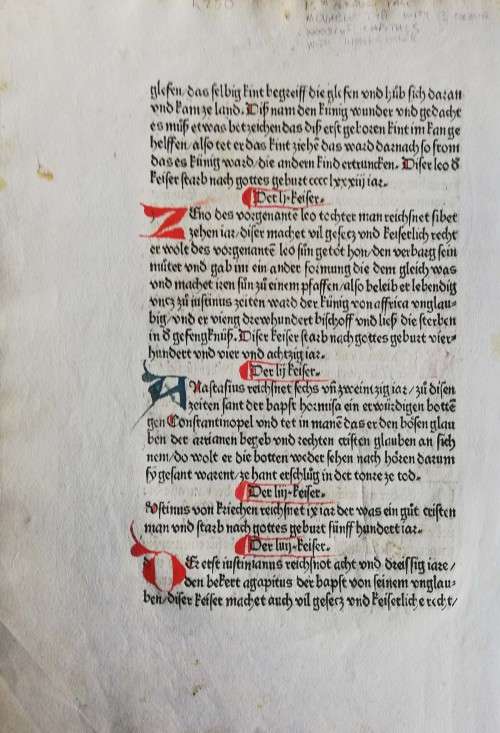 glesen/das selbig kint begreiff die glesen vnd hůb sich daran
vnd kam ze land. Diß nam den künig wunder vnd gedacht
es můß etwas betzeichen das diß erst geboren kint im kan ge
helffen/also tet er das kint ziehē das ward darnach so from
das es künig ward/die andern kind ertruncken. Diser leo d̕
keiser starb nach gottes geburt cccc lxxxiij iar.
Der lj. keiser.
ZEno des vorgenantē leo tochter man reichsnet sibet
zehen iar/diser machet vil gesecz vnd keiserlich recht
er wolt des vorgenantē leo sůn getöt hon/den verbarg sein
můter vnd gab im ein ander formung die dem gleich was
vnd machet iren sůn zů einem pfaffen/also beleib er lebendig
vncz zů iustinus zeiten ward der künig von affrica vnglau-
big/vnd er vieng drewhundert bischoff vnd ließ die sterben
in d̕ gefengknuß. Diser keiser starb nach gottes geburt vier-
hundert vnd vier vnd achtzig iar.
Der lij keiser.
ANastasius reichsnet sechs vn̄ zweintzig iar/zů disen
zeiten sant der bapst hormisa ein erwürdigen bottē
gen Constantinopel vnd tet in manē das er den bösen glau
ben der arrianen begeb vnd rechten cristen glauben an sich
nem/do wolt er die botten weder sehen noch hören darum
sy gesant warent/ze hant erschlůg in der tonre ze tod.
Der liij. keiser.
Iustinus von kriechen reichsnet ix iar der was ein gůt cristen
man vnd starb nach gottes geburt fünff hundert iar.
Der liiij. keiser.
DEr erst iustinianus reichsnot acht vnd dreissig iare/
den bekert agapitus der bapst von seinem vnglau-
ben/diser keiser machet auch vil gesecz vnd keiserliche recht/